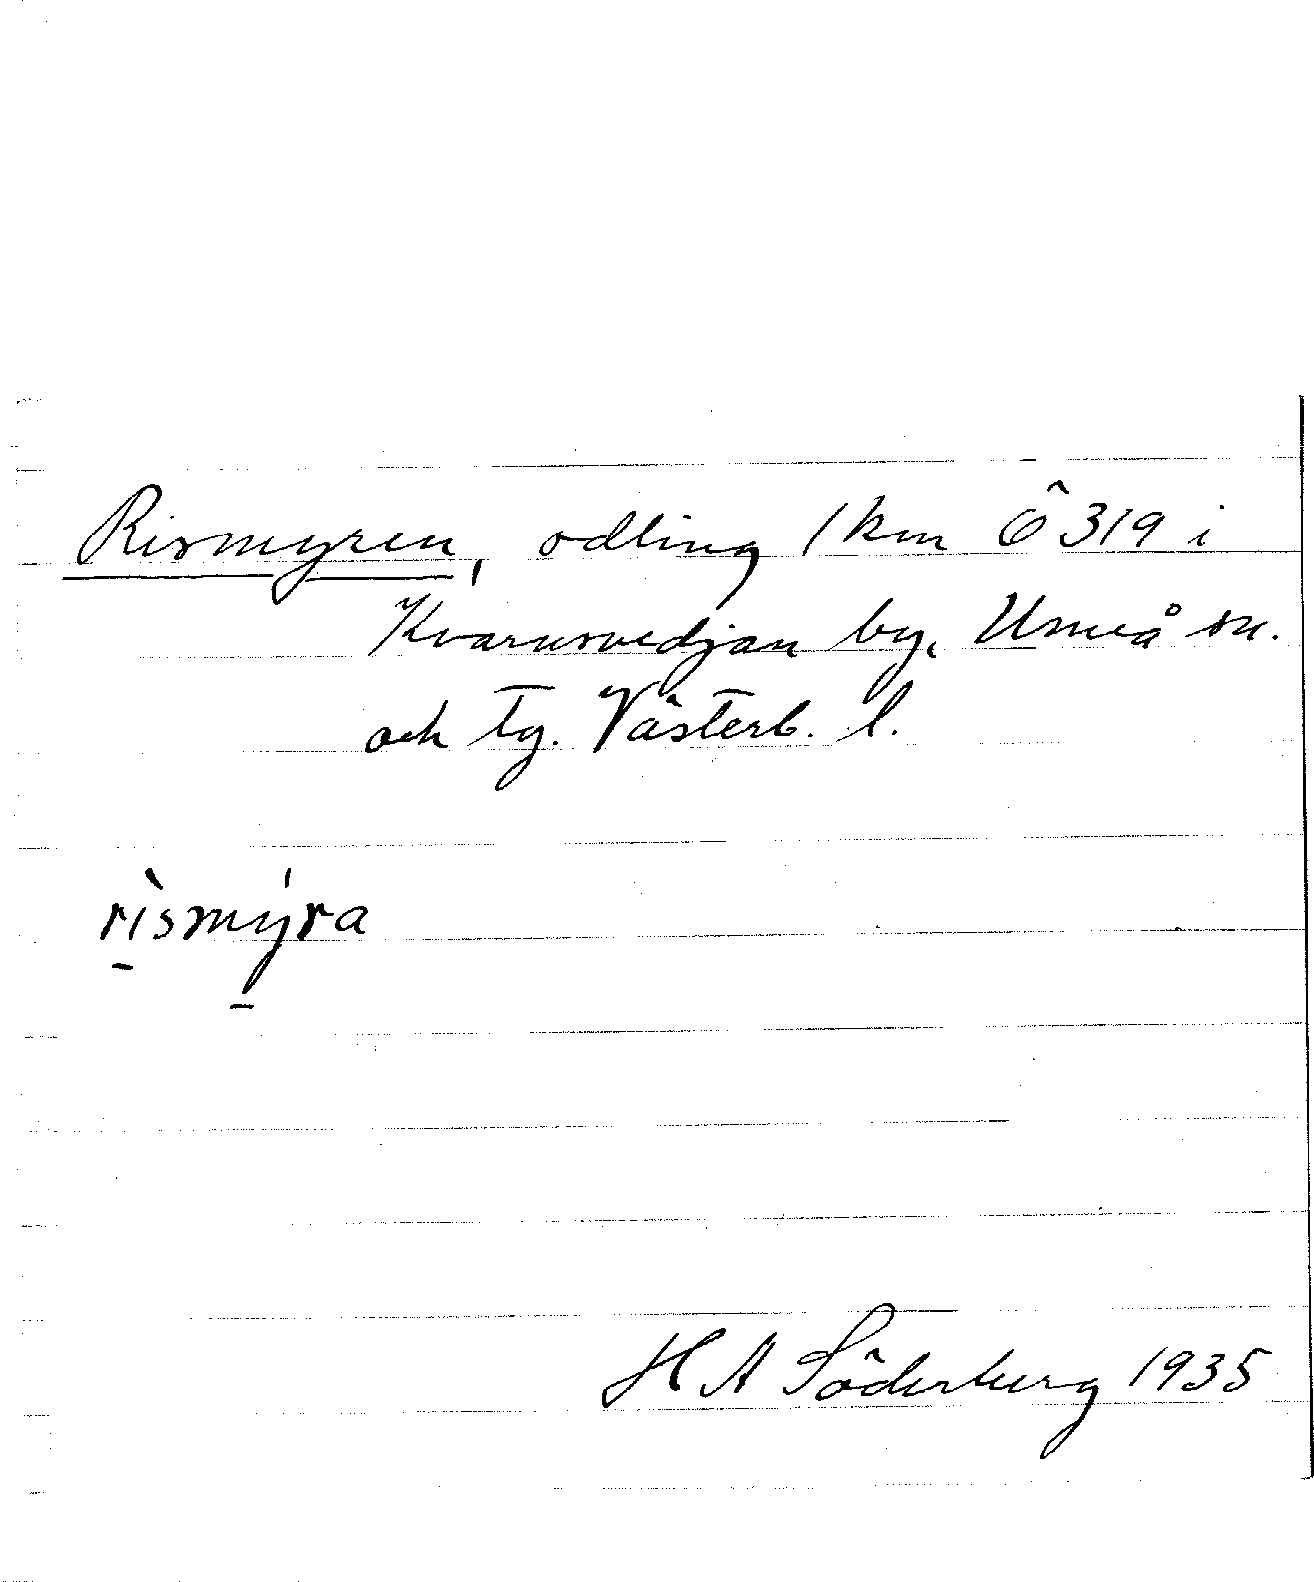 Rismyren, odling 1 km Ö 319 i
Kvarnsvedjan by, Umeå sn.
och tg. Västerb. l.
rìsmýra
H A Söderberg 1935